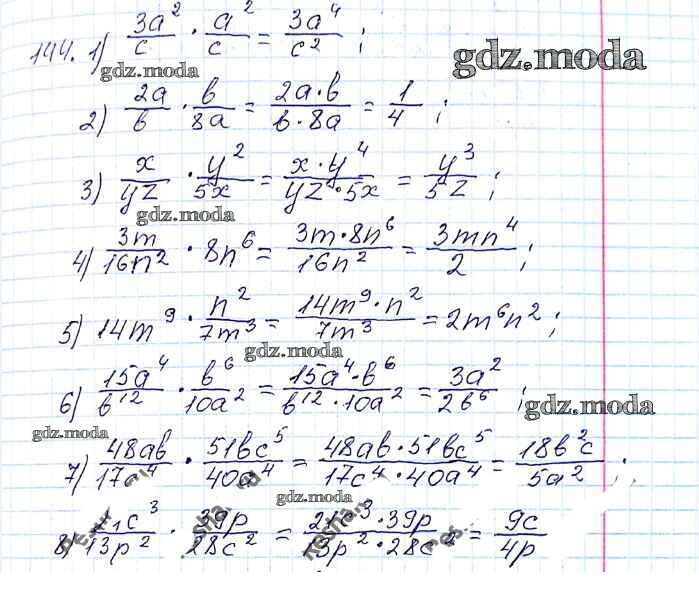 144. 1) 3a²/c · a²/c = 3a⁴/c² ;
gdz.moda
gdz.moda
2) 2a/b · b/8a = 2a·b/b·8a = 1/4 ;
3) x/yz · y²/5x = x·y⁴/yz·5x = y³/5z ;
gdz.moda
4) 3m/16n² · 8n⁶ = 3m·8n⁶/16n² = 3mn⁴/2 ;
5) 14m⁹ · n²/7m³ = 14m⁹·n²/7m³ = 2m⁶n² ;
gdz.moda
6) 15a⁴/b¹² · b⁶/10a² = 15a⁴·b⁶/b¹²·10a² = 3a²/2b⁶ ;
gdz.moda
gdz.moda
7) 48ab/17c⁴ · 51bc⁵/40a⁴ = 48ab·51bc⁵/17c⁴·40a⁴ = 18b²c/5a² ;
gdz.moda
8) 21c³/13p² · 39p/28c² = 21c³·39p/13p²·28c² = 9c/4p